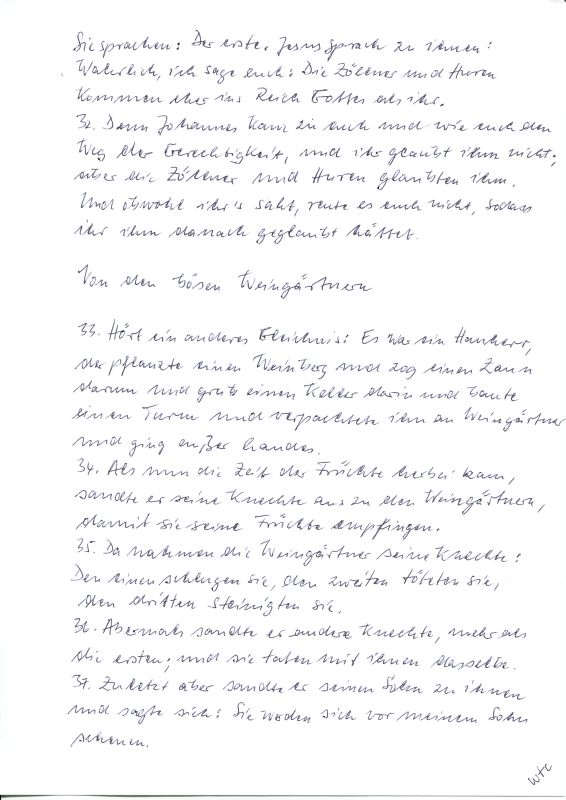 Sie sprachen: Der erste. Jesus sprach zu ihnen:
Wahrlich, ich sage euch: Die Zöllner und Huren
kommen eher ins Reich Gottes als ihr.
32. Denn Johannes kam zu euch und wies euch den
Weg der Gerechtigkeit, und ihr glaubt ihm nicht;
aber die Zöllner und Huren glaubten ihm.
Und obwohl ihr's saht, reute es euch nicht, sodass
ihr ihm danach geglaubt hättet.
Von den bösen Weingärtnern
33. Hört ein anderes Gleichnis: Es war ein Hausherr,
der pflanzte einen Weinberg und zog einen Zaun
darum und grub einen Kelter darin und baute
einen Turm und verpachtete ihn an Weingärtner
und ging außer Landes.
34. Als nun die Zeit der Früchte herbei kam,
sandte er seine Knechte aus zu den Weingärtnern,
damit sie seine Früchte empfingen.
35. Da nahmen die Weingärtner seine Knechte:
Den einen schlugen sie, den zweiten töteten sie,
den dritten steinigten sie.
36. Abermals sandte er andere Knechte, mehr als
die ersten; und sie taten mit ihnen dasselbe.
37. Zuletzt aber sandte er seinen Sohn zu ihnen
und sagte sich: Sie werden sich vor meinem Sohn
scheuen.